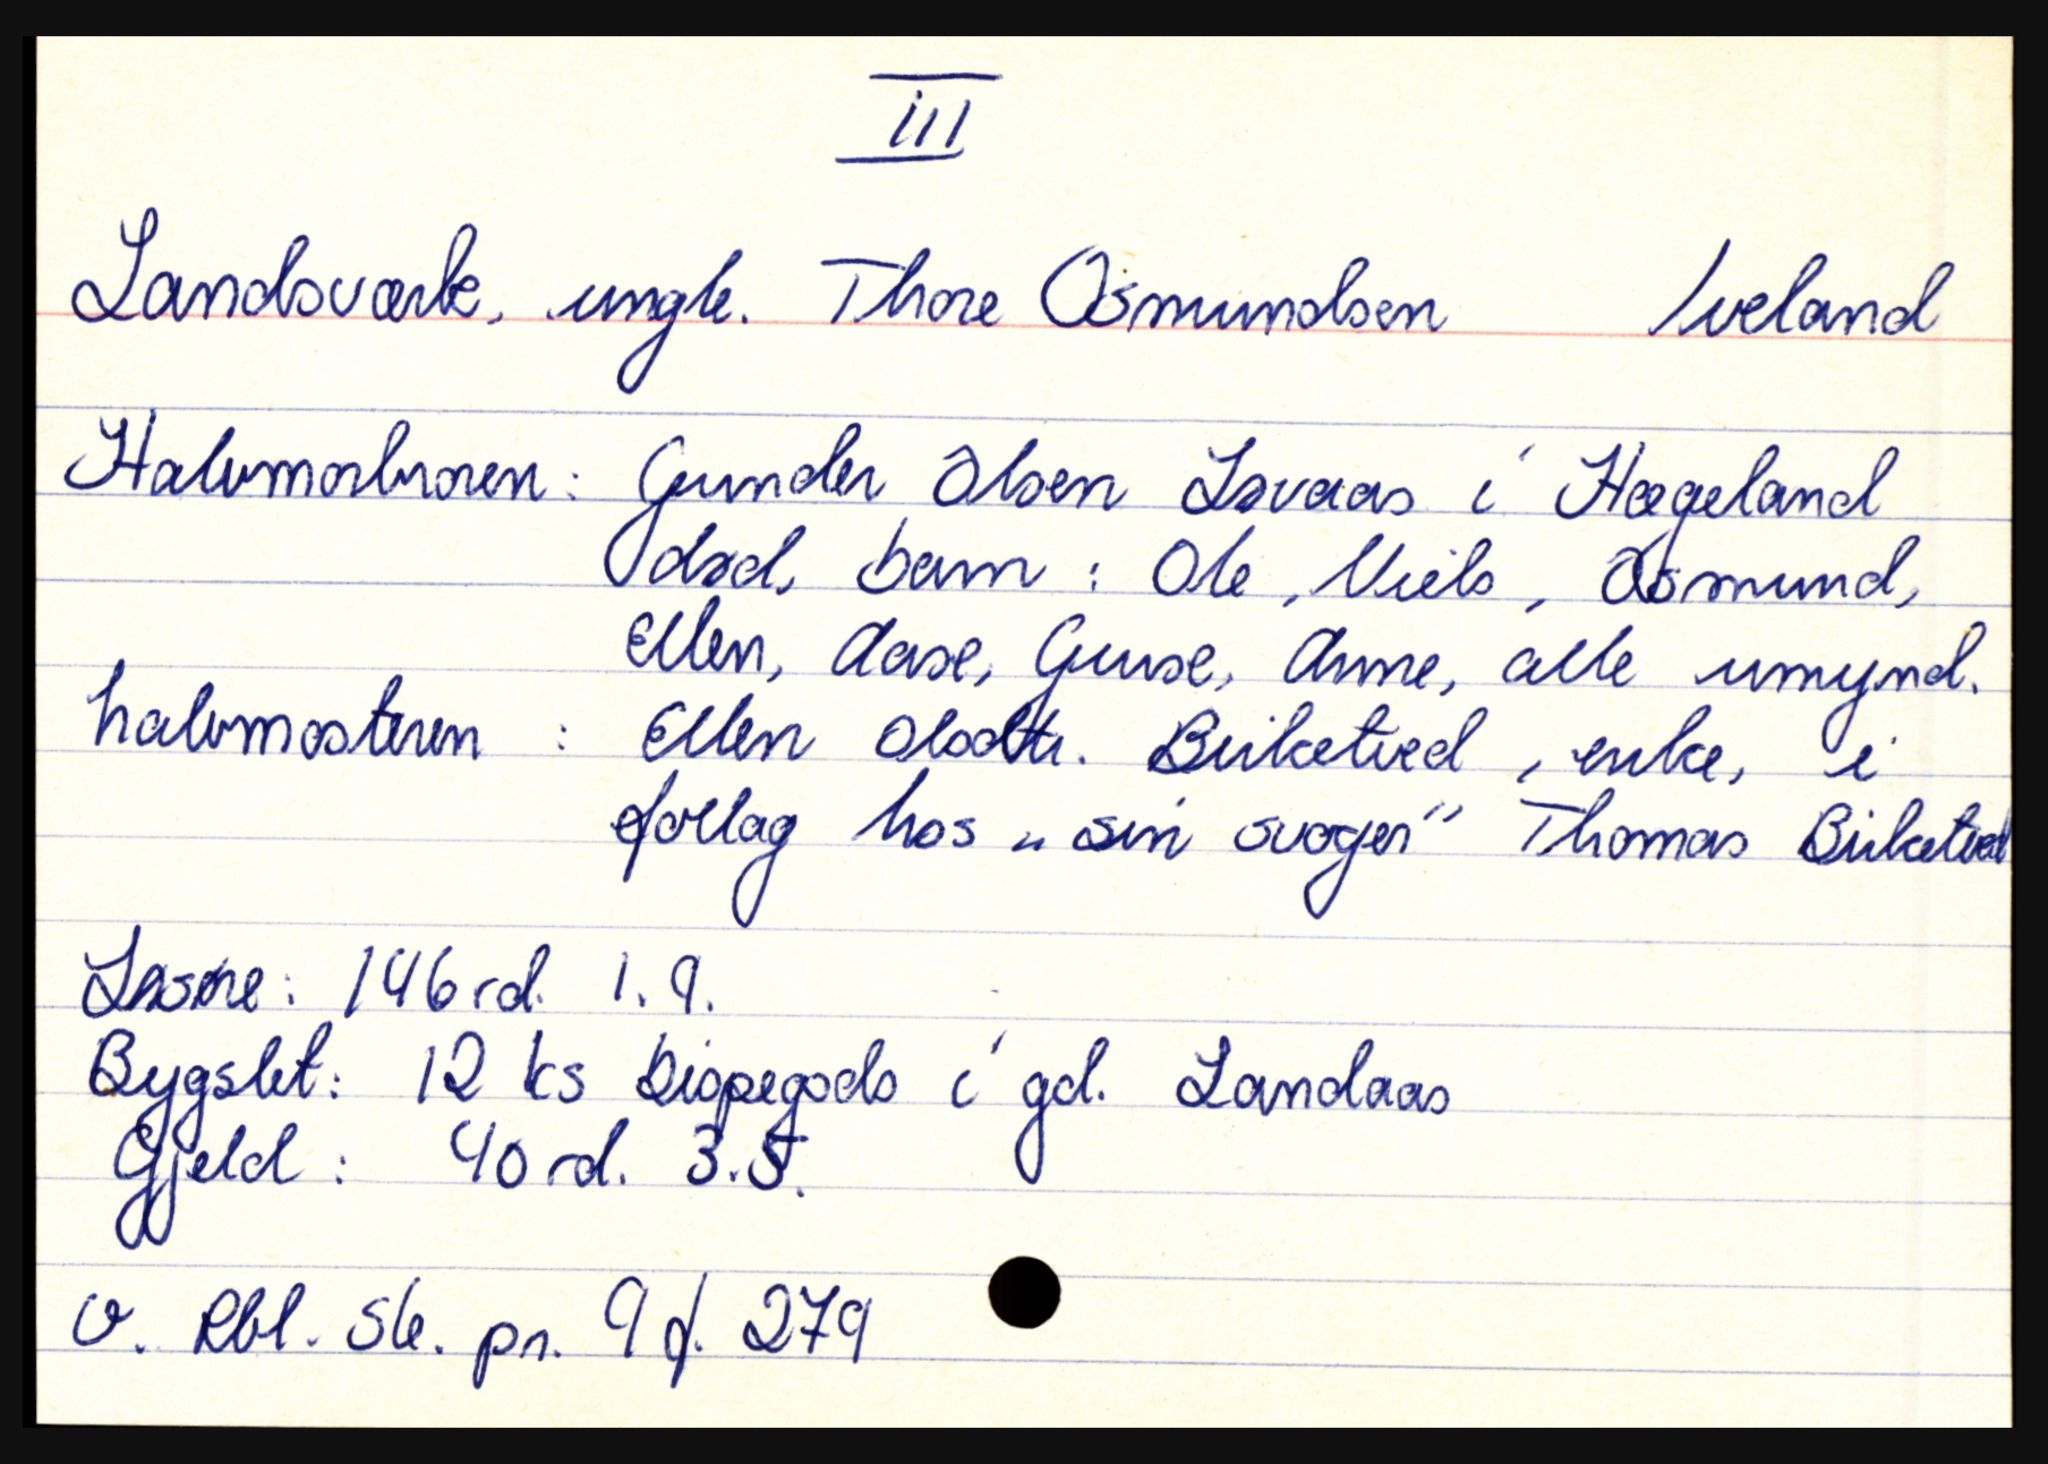 III
Landsværk, ungk. Thore Osmundsen Iveland
Halvmorbroren: Gunder Olsen Løvaas i Hægeland
død, barn: Ole, Niels, Osmund,
Ellen, Aase, Guroe, Anne, alle umynd.
halvmosteren: Ellen Olsdtr. Birketved, enke, i
follag hos „sin svoger" Thomas Birketved
Løsøre: 146 rd. 1.9.
Bygslet: 12 ks bispegods i gd. Landaas
Gjeld: 40 rd. 3.5.
v. Rbl. Ske. pr. 9 f. 279